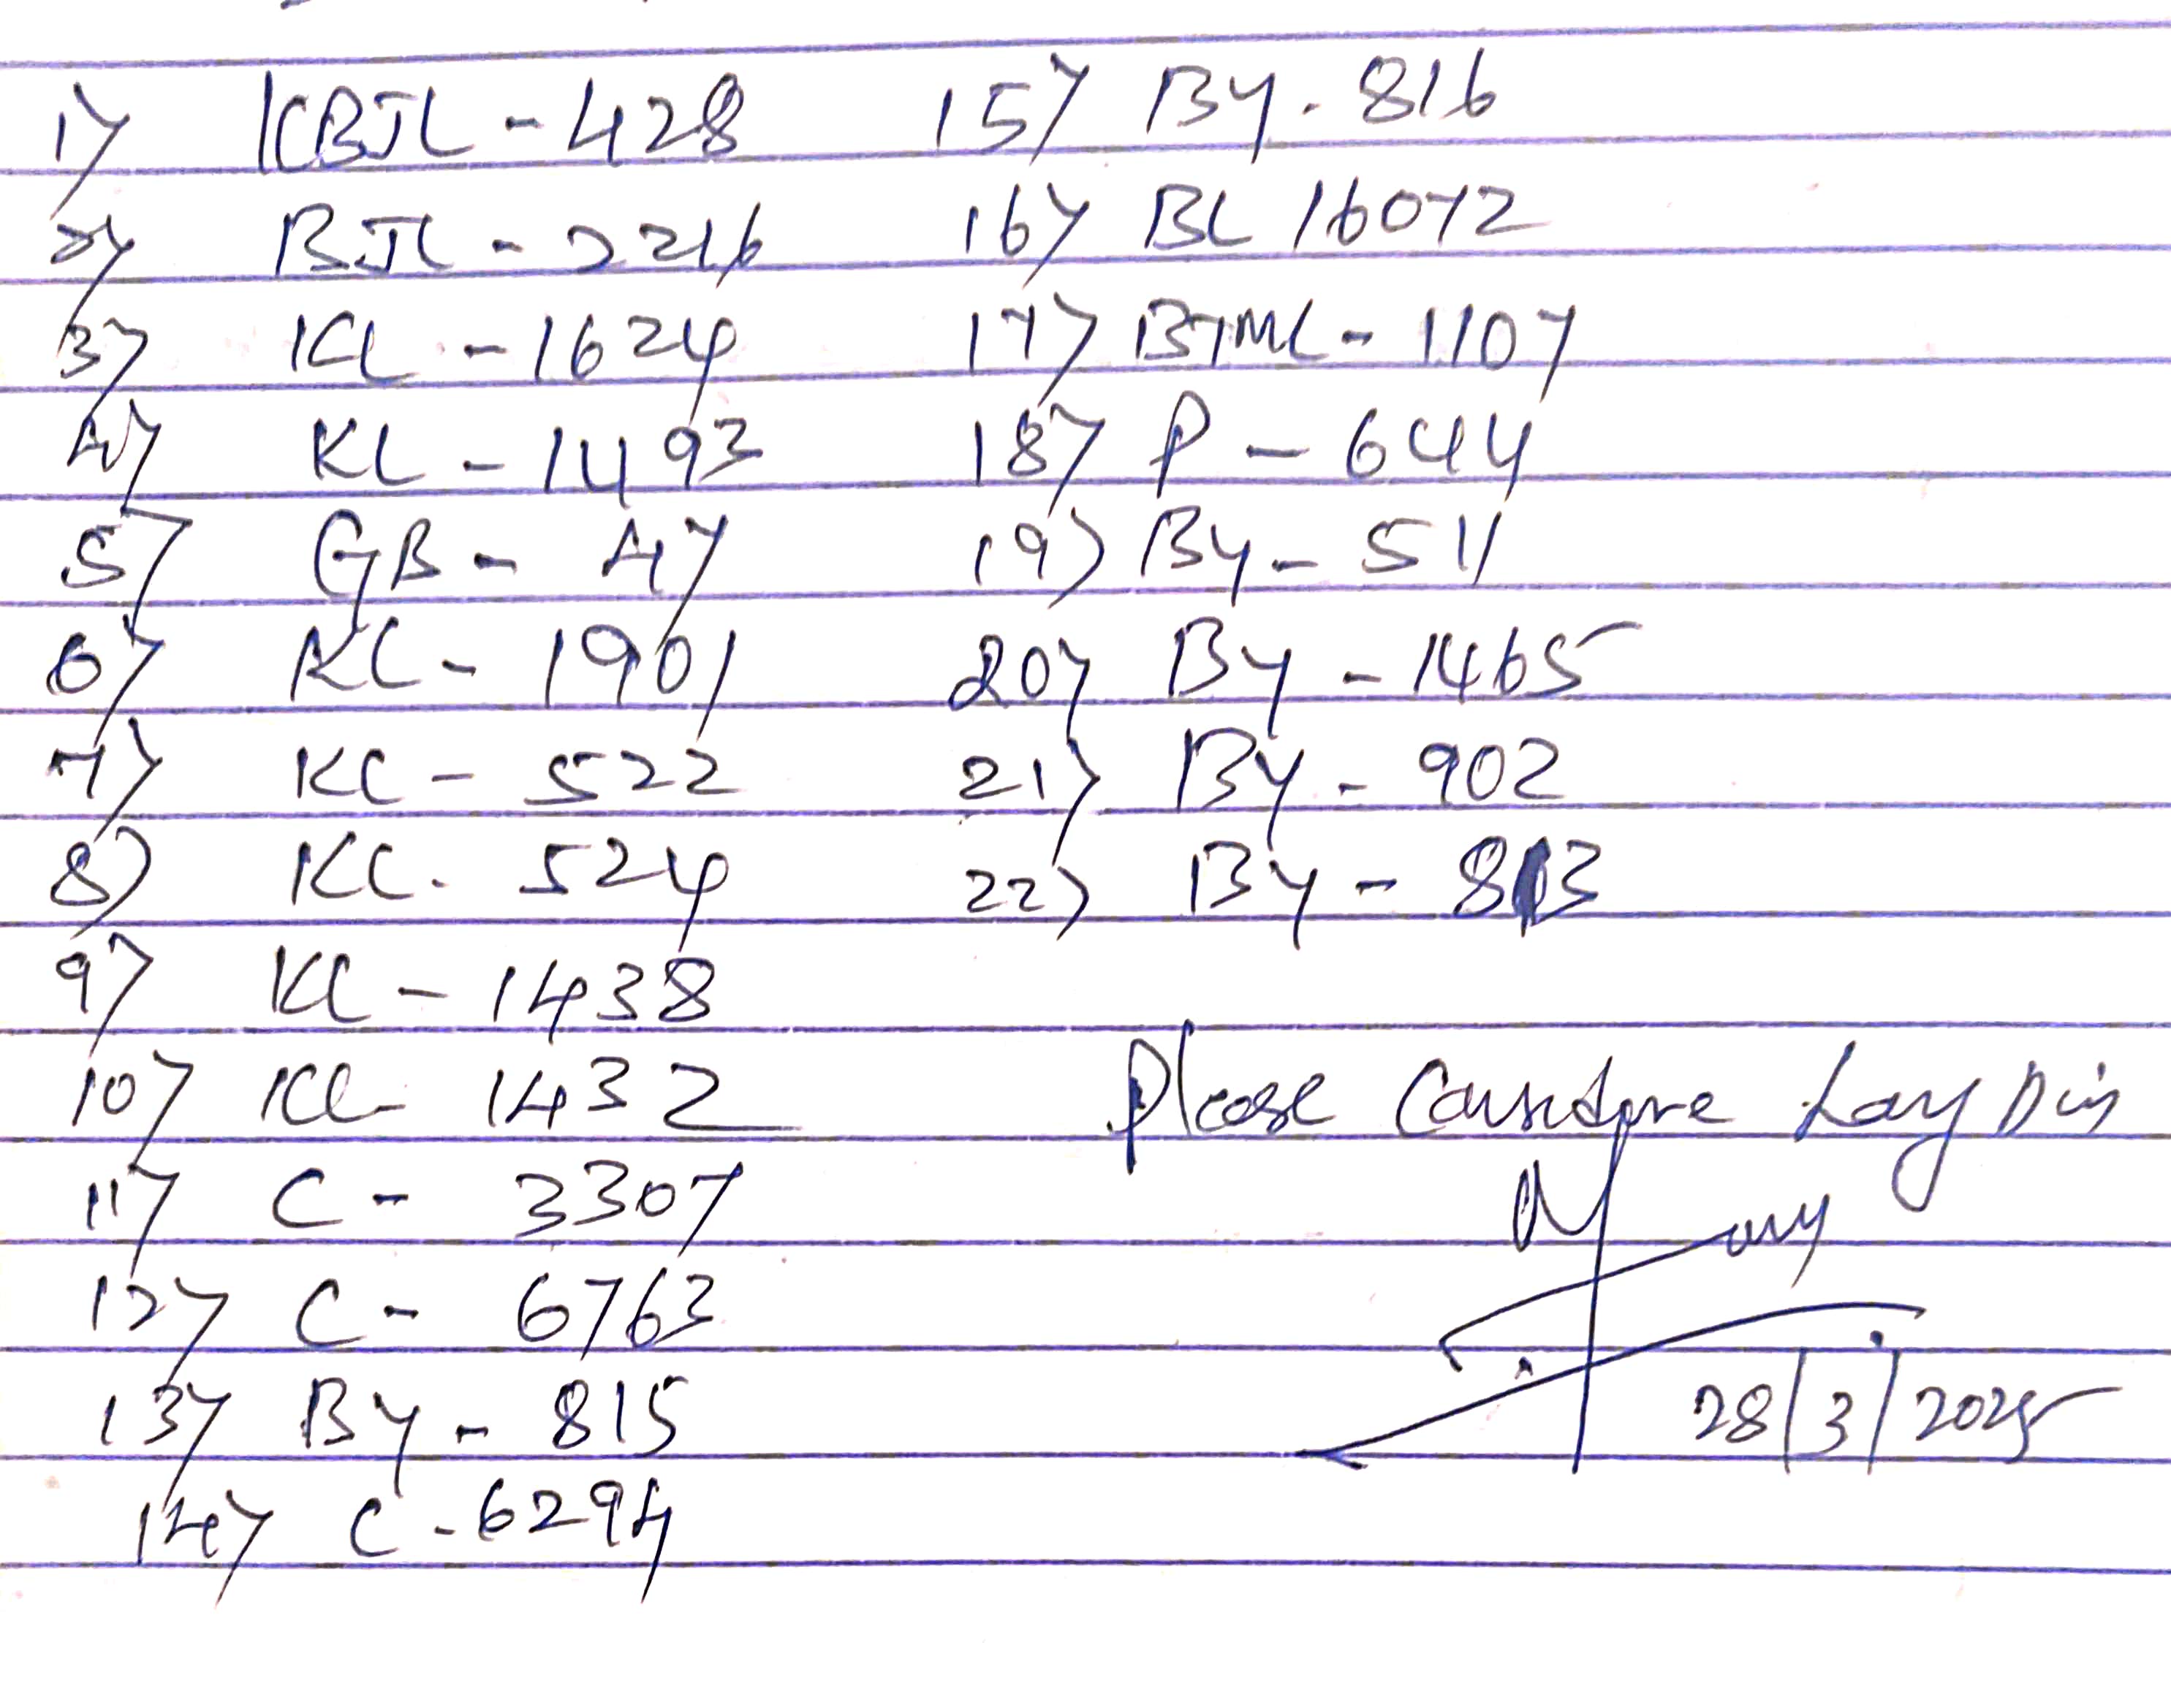 1) KBJL - 428
2) BJL - 2216
3) KL - 1624
4) KL - 1493
5) GB - 47
6) KL - 1901
7) KL - 522
8) KL - 524
9) KL - 1438
10) KL - 1432
11) C - 3307
12) C - 6763
13) By - 815
14) C - 6294
15) By - 816
16) BL 16072
17) BTML - 1107
18) P - 644
19) By - 511
20) By - 1465
21) By - 902
22) By - 813
Please
28/3/2025